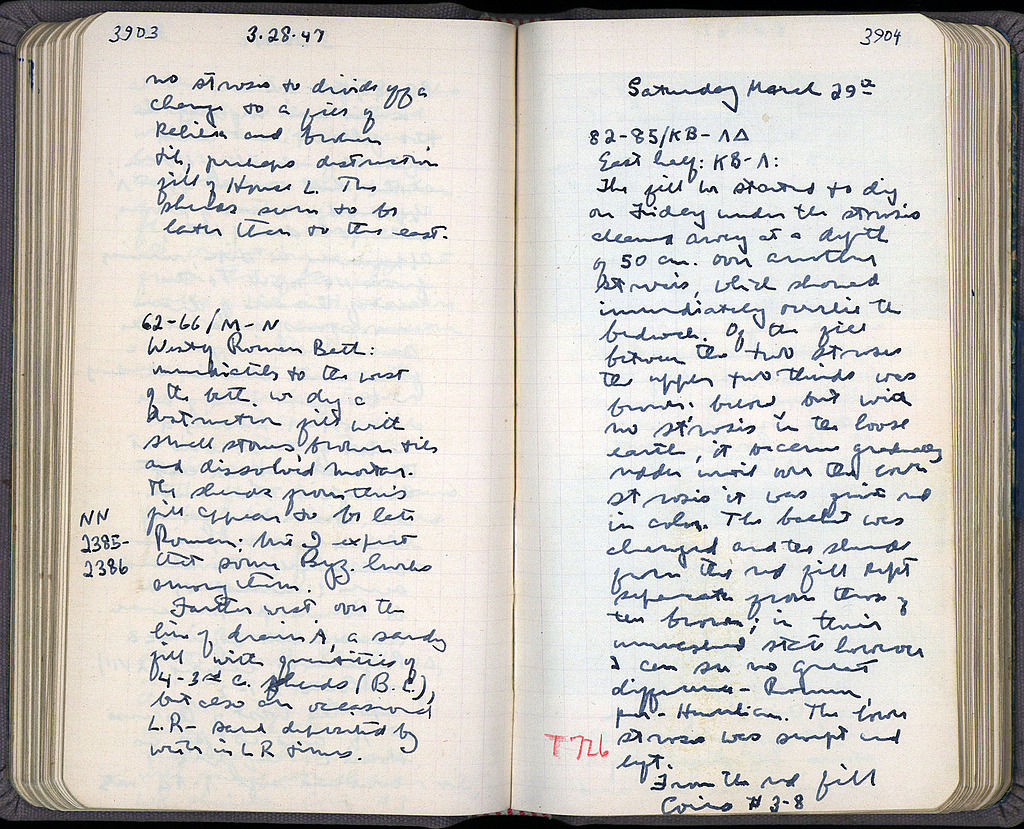 3903
3.28.47
no strosis to divide off a
change to a fill of
Kelilia and broken
tile, perhaps destruction
fill of House L. The
sherds seem to be
later than to the east.
62-66/M-N
West of Roman Bath:
immediately to the west
of the bath we dig a
destruction fill with
small stones, broken tiles
and dissolved mortar.
The sherds from this
fill appear to be late
Roman; but I expect
that some Byz. lurks
among them.
NN
2385-
2386
Farther west over the
line of drain A, a sandy
fill with quantities of
4-3rd c. sherds (B.C.),
but also an occasional
L.R. - sand deposited by
water in LR times.
3904
Saturday March 29th
82-85/KB-ΛΔ
East half: KB-Λ:
The fill we started to dig
on Friday under the strosis
cleaned away at a depth
of 50 cm. over another
strosis, which showed
immediately overlie the
bedrock. Of the fill
between the two stroses
the upper two thirds was
brown; below but with
no strosis in the loose
earth, it became gradually
redder until over the lower
strosis it was quite red
in color. The basket was
changed and the sherds
from the red fill kept
separate from those of
the brown; in their
unwashed state however
I can see no great
difference - Roman,
pre-Herulian. The lower
strosis was swept and
left.
T 726
From the red fill
Coins # 3-8